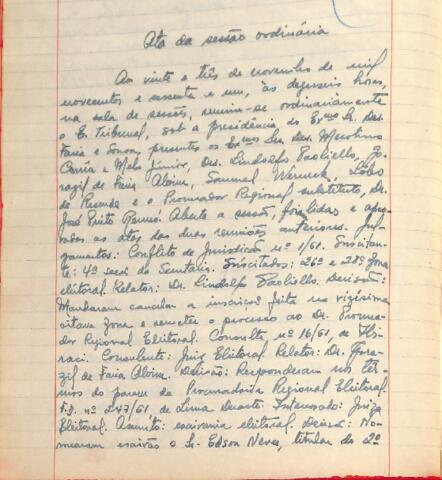 Ata da sessão ordinária
Aos vinte e três de novembro de mil
novecentos e sessenta e um, às dezesseis horas,
na sala de sessões, reuniu-se ordinariamente
o E. Tribunal, sob a presidência do Exmo Sr. Des.
Faria e Sousa, presentes os Exmos Srs. Des. Merolino
Corrêa e Melo Júnior, Drs. Lindolfo Paoliello,
de Faria Alvim, Samuel Werneck, Lobo
de Rezende e o Procurador Regional substituto, Dr.
José Pinto Renó. Aberta a sessão, foram lidas e apro-
vadas as atas das duas reuniões anteriores. Jul-
gamentos: Conflito de Jurisdição nº 1/61. Suscitan-
te: 4ª seção da Secretaria. Suscitados: 26ª e 28ª zona
eleitoral. Relator: Dr. Lindolfo Paoliello. Decisão:
Mandaram cancelar a inscrição feita na vigésima
oitava zona e remeter o processo ao Dr. Procura-
dor Regional Eleitoral. Consulta nº 16/61, de Ibi-
raci. Consulente: Juiz Eleitoral. Relator: Dr.
de Faria Alvim. Decisão: Responderam nos ter-
mos do parecer da Procuradoria Regional Eleitoral.
nº 247/61, de Lima Duarte. Interessado: Juiz
Eleitoral. Assunto: escrivania eleitoral. Decisão: No-
mearam escrivão o Sr. Edson Neves, titular do 2º